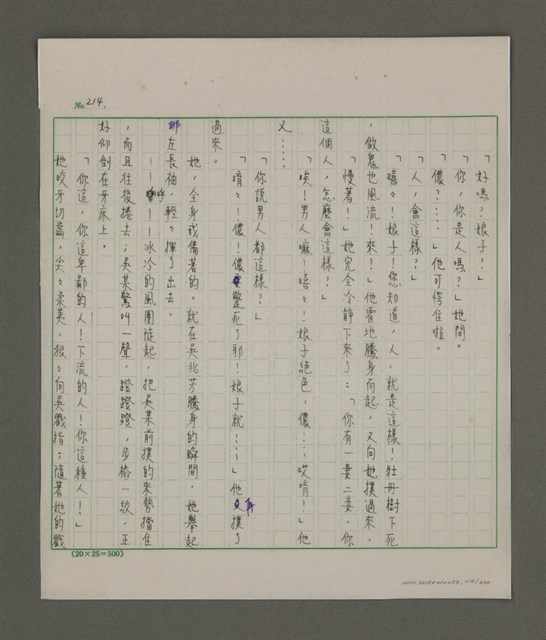 No. 214.
「好嗎?娘子?」
「你,你是人嗎?」她問。
「儂?……」他可愣住啦。
「人,會這樣?」
「嘻々!娘子!您知道,人,就是這樣!牡丹樹下死
,做鬼也風流!來!」他霍地騰身而起,又向她撲過來。
「慢著!」她完全冷靜下來了:「你有一妻二妾,你
這個人,怎麼會這樣?」
「唉!男人嘛!嘻々!娘子絕色,儂……哎唷!」他
又……
「你說男人都這樣?」
「唷々!儂!儂 憋死了耶!娘子就!……」他再撲了
過來。
她,全身戒備著的。就在吳兆芳騰身的瞬間,她舉起
那左長袖,輕々揮了出去。
——呼——冰冷的風團陡起,把吳某前撲的來勢擋住
,而且往後捲去;吳某驚叫一聲,蹬蹬蹬,步樁一絞,正
好仰倒在牙床上。
「你這,你這卑鄙的人!下流的人!你這種人!」
她咬牙切齒,尖々柔荑,狠々向吳戳指;隨著她的戳
(20×25=500)